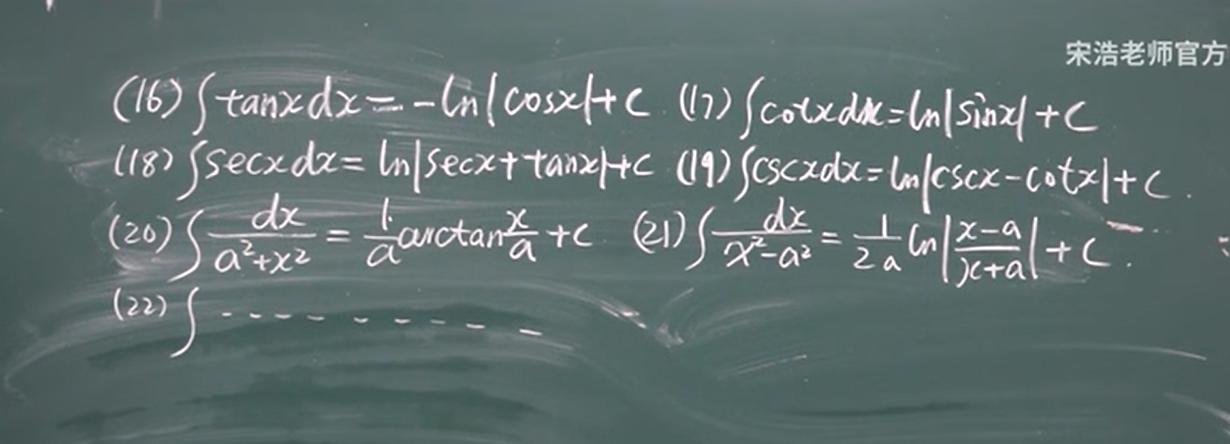 宋浩老师官方
(16) ∫tanxdx = -ln|cosx|+C (17) ∫cotxdx=ln|sinx|+C
(18) ∫secxdx= ln|secx+tanx|+C (19) ∫cscxdx=ln|cscx-cotx|+C.
(20) ∫dx/(a²+x²) = 1/a arctan x/a +C (21) ∫dx/(x²-a²) = 1/2a ln|(x-a)/(x+a)|+C.
(22) ∫ - - - - - - - - -